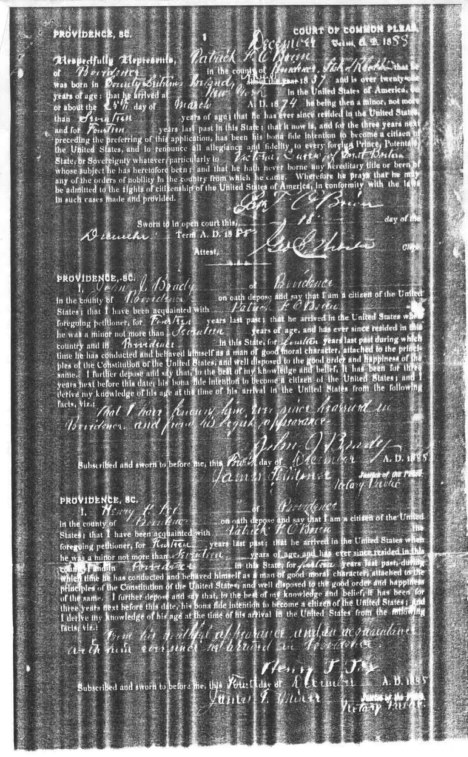 PROVIDENCE, SC. COURT OF COMMON PLEAS,
December Term, A. D. 1885
Respectfully Represents, Patrick F. O'Brien
of Providence in the county of Providence, State of Rhode Island
was born in in the year 1857 and is over twenty-one
years of age; that he arrived at New York in the United States of America,
or about the 25th day of March A. D. 1874 he being then a minor, not more
than Seventeen years of age; that he has ever since resided in the United States,
and for Fourteen years last past in this State; that it now is, and for the three years next
preceding the preferring of this application, has been his bona fide intention to become a citizen of
the United States, and to renounce all allegiance and fidelity to every foreign Prince, Potentate,
State or Sovereignty whatever; particularly to Victoria Queen of Great Britain
whose subject he has heretofore been; and that he hath never borne any hereditary title or been of
any of the orders of nobility in the country from which he came. Wherefore he prays that he may
be admitted to the rights of citizenship of the United States of America, in conformity with the laws
in such cases made and provided.
O'Brien
Sworn to in open court this 18 day of the
December Term A. D. 1885
Attest, Clerk
PROVIDENCE, SC.
I, John J. Brady of Providence
in the county of Providence on oath depose and say that I am a citizen of the United
States; that I have been acquainted with Patrick F. O'Brien
foregoing petitioner, for Fourteen years last past; that he arrived in the United States when
he was a minor not more than Seventeen years of age, and has ever since resided in this
country and in Providence in this State, for fourteen years last past during which
time he has conducted and behaved himself as a man of good moral character, attached to the princi-
ples of the Constitution of the United States, and well disposed to the good order and happiness of the
same. I further depose and say that, to the best of my knowledge and belief, it has been for three
years next before this date, his bona fide intention to become a citizen of the United States; and I
derive my knowledge of his age at the time of his arrival in the United States from the following
facts, viz.:
That I have known him ever since he arrived in
Providence and from his appearance
John J. Brady
Subscribed and sworn to before me, this day of December A. D. 1885
James Justice of the Peace.
Notary Public
PROVIDENCE, SC.
I, Henry P. of Providence
in the county of Providence on oath depose and say that I am a citizen of the United
States; that I have been acquainted with Patrick F. O'Brien the
foregoing petitioner, for Fourteen years last past; that he arrived in the United States when
he was a minor not more than Seventeen years of age, and has ever since resided in this
country and in Providence in this State, for fourteen years last past, during
which time he has conducted and behaved himself as a man of good moral character, attached to the
principles of the Constitution of the United States, and well disposed to the good order and happiness
of the same. I further depose and say that, to the best of my knowledge and belief, it has been for
three years next before this date, his bona fide intention to become a citizen of the United States; and
I derive my knowledge of his age at the time of his arrival in the United States from the following
facts, viz.:
From his youthful appearance and an acquaintance
with him ever since he arrived in Providence
Henry
Subscribed and sworn to before me, this day of December A. D. 1885
James Justice of the Peace.
Notary Public